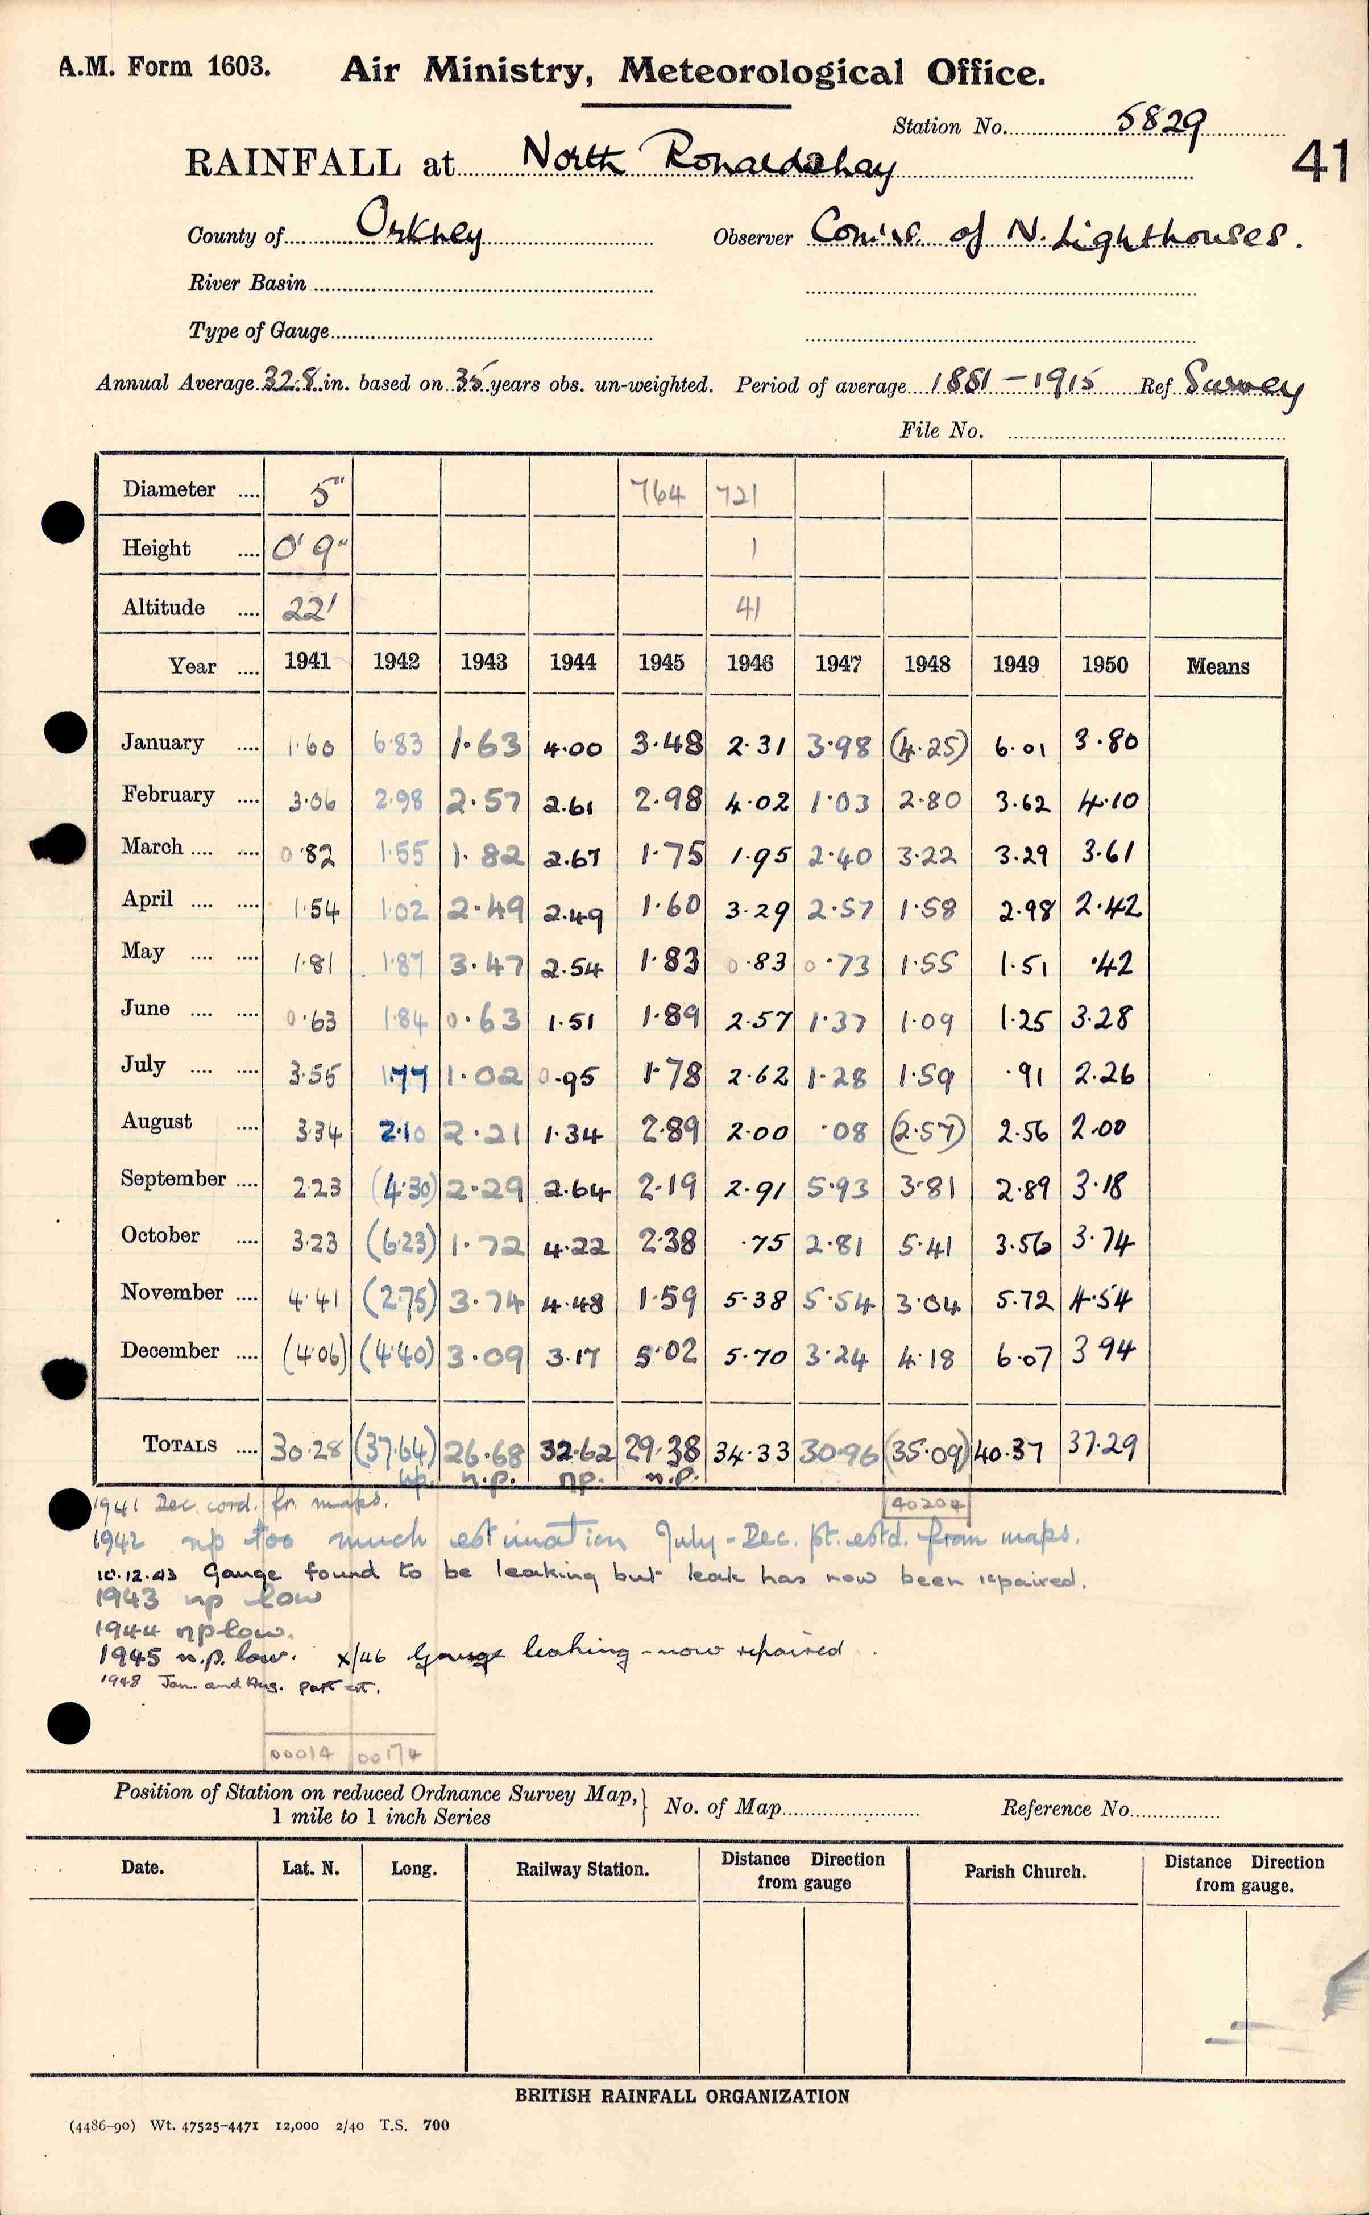 A.M. Form 1603. Air Ministry, Meteorological Office.
Station No. 5829
RAINFALL at North Ronaldshay 41
County of Orkney Observer Comrs. of N. Lighthouses.
River Basin
Type of Gauge
Annual Average 32.8 in. based on 35 years obs. un-weighted. Period of average 1881-1915 Ref Survey
File No.
Diameter .... 5" 764 721
Height .... 0' 9" 1
Altitude .... 22' 41
Year .... 1941 1942 1943 1944 1945 1946 1947 1948 1949 1950 Means
January .... 1.60 6.83 1.63 4.00 3.48 2.31 3.98 (4.25) 6.01 3.80
February .... 3.06 2.98 2.57 2.61 2.98 4.02 1.03 2.80 3.62 4.10
March .... .... 0.82 1.55 1.82 2.67 1.75 1.95 2.40 3.22 3.29 3.61
April .... .... 1.54 1.02 2.49 2.49 1.60 3.29 2.57 1.58 2.98 2.42
May .... .... 1.81 1.87 3.47 2.54 1.83 0.83 0.73 1.55 1.51 .42
June .... .... 0.63 1.84 0.63 1.51 1.89 2.57 1.37 1.09 1.25 3.28
July .... .... 3.55 1.77 1.02 0.95 1.78 2.62 1.28 1.59 .91 2.26
August .... 3.34 2.10 2.21 1.34 2.89 2.00 .08 (2.57) 2.56 2.00
September .... 2.23 (4.30) 2.29 2.64 2.19 2.91 5.93 3.81 2.89 3.18
October .... 3.23 (6.23) 1.72 4.22 2.38 .75 2.81 5.41 3.56 3.74
November .... 4.41 (2.75) 3.74 4.48 1.59 5.38 5.54 3.04 5.72 4.54
December .... (4.06) (4.40) 3.09 3.17 5.02 5.70 3.24 4.18 6.07 3.94
TOTALS .... 30.28 (37.64) 26.68 32.62 29.38 34.33 30.96 (35.09) 40.37 37.29
np. n.p. np. n.p.
1941 Dec cord. fr. maps. 40204
1942 np too much estimation July-Dec. pt. estd. from maps.
10.12.43 Gauge found to be leaking but leak has now been repaired.
1943 np low
1944 np low.
1945 n.p. low. X/46 Gauge leaking - now repaired.
1948 Jan. and Aug. part est.
00014 00174
Position of Station on reduced Ordnance Survey Map, 1 mile to 1 inch Series } No. of Map Reference No.
Date. Lat. N. Long. Railway Station. Distance Direction from gauge Parish Church. Distance Direction from gauge.
BRITISH RAINFALL ORGANIZATION
(4486-90) Wt. 47525-4471 12,000 2/40 T.S. 700